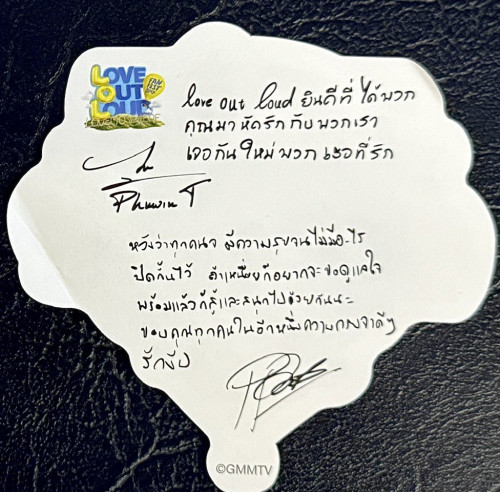 LOVE
OUT
LOUD
FAN
FEST
love out loud ยินดีที่ ได้พวก
คุณมา หัดรัก กับ พวกเรา
เจอกันใหม่ พวก เธอที่รัก
Phuwin T
หวังว่าทุกคนจะ มีความสุขจนไม่มีอะไร
ปิดกั้นไว้ ถ้าเหนื่อยก็อยากจะขอดูแลใจ
พร้อมแล้วก็สู้และสนุกไปด้วยกันนะ
ขอบคุณทุกคนในอีกหนึ่งความทรงจำดีๆ
รักงับ
©GMMTV